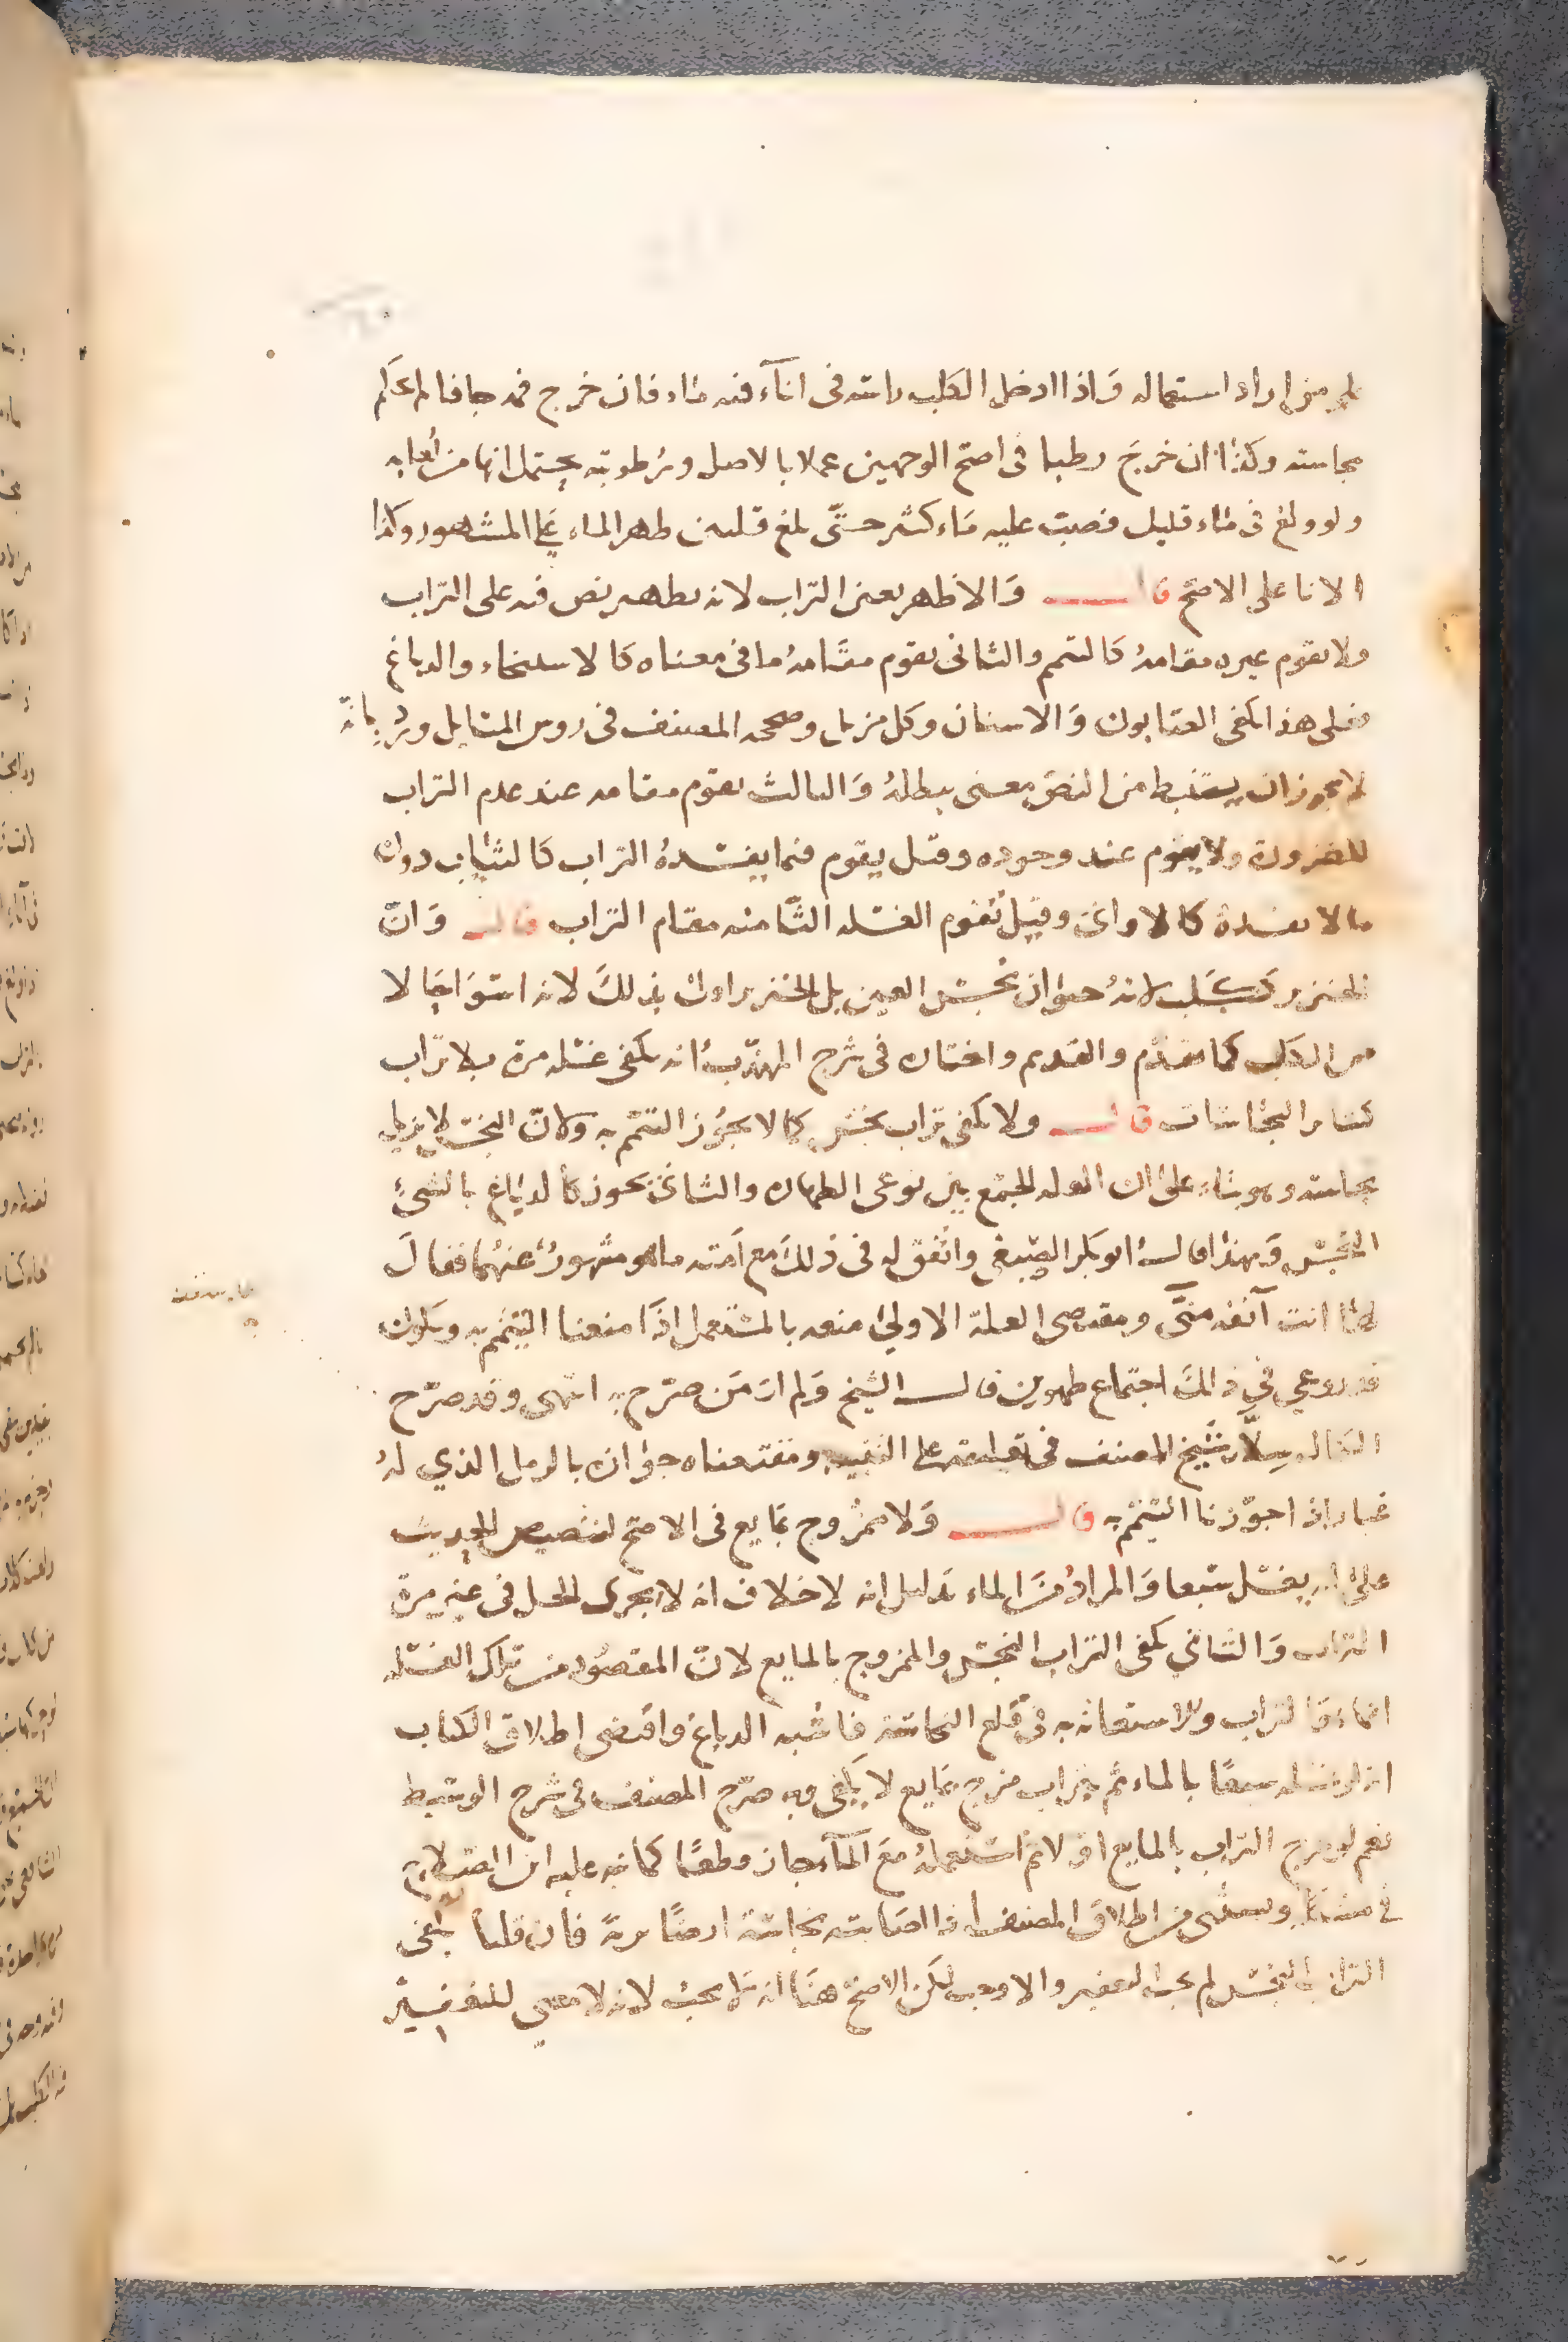 لم من اراد استعماله وَاذا ادخل الكلب راسه فى انآء فيه ماء فان خرج فمه جافا لم يحكم
بنجاسته وكذا ان خرج رطبا فى اصح الوجهين عملا بالاصل ورطوبته يحتمل انها من لعابه
ولو ولغ فى ماء قليل فصبّ عليه مَاء كثير حتّى بلغ قلتين طهر الماء على المشهور وكذا
الانا على الاصح قال وَالاظهر تعين التراب لانه تطهير نص فيه على التراب
ولا يقوم غيره مقامهُ كالتيمم والثانى يقوم مقَامهُ ما فى معناه كالاستنجاء والدباغ
فعلى هذا يكفى الصابون وَالاشنان وكل مزيل وصححه المصنف فى روس المسَايل ورُدّ بانّه
لا يجوز ان يستنبط من النص معنى يبطلهُ وَالثالث يقوم مقامه عند عدم التراب
للضرورة ولا يقوم عند وجوده وقيل يقوم فيما يفسدهُ التراب كالثياب دون
ما لا يفسده كالاوانى وقيل تقوم الغسله الثّامنه مقام التراب قال وَانّ
الخنزير ككَلب لانهُ حيوان نجس العين بل الخنزير اولى بذلكَ لانه اسوَا حَالا
من الكلب كما تقدّم والقديم واختاره فى شرح المهذّب انه يكفى غسله مرة بلا تراب
كسَاير النجاسَات قال ولا يكفى تراب نجس كما لا يجوُز التيمّم به ولانّ النجس لا يزيل
نجاسته وهو بناء على ان العله الجمع بين نوعى الطهاره والثانى يجوز كالدباغ بالشىء
النجس وَبهذا قال ابو بكر الصبغى واتّفق له فى ذلكَ مع اَمته ما هو مشهورٌ عنهُما فقالَ
لها انت آنفه منّى ومقتضى العلة الاولى منعه بالمستعمل اذَا منعنا التيمّم به ويكون
قد روعي في ذالكَ اجتماع طهورين قال الشيخ وَلم ارَ مَن صرّح به انتهى وقد صرّح
الكمال سلّار شيخ المصنف فى تعليقته على التنبيه ومقتضاه جوازه بالرمل الذي لهُ
غبار اذا جوّزنا التيَمّم به قال وَلا ممزُوج بمَايع فى الاصح لتنصيص الحديث
على ان يغسّل سَبعا وَالمرادُ منَ الماء بَدليل انه لا خلاف انه لا يجزى الخل فى غير مرة
التراب وَالثاني يكفى التراب النجس والممزوج بالمايع لانّ المقصُود من تلك الغسله
انما هوَ التراب وللاستعانه به فى قلع النجاسَة فاشبه الدباغ واقتضى اطلاق الكتاب
انه لو غسله سبعًا بالماء ثم بتراب مزج بمَايع لا يكفى وبه صرّح المصنف فى شرح الوسيط
نعم لو مزج التراب بالمايع اوّلا ثم استعملهُ معَ المآء جاز قطعًا كما نبه عليه ابن الصلاح
فى مشكله ويستثنى من اطلاق المصنف ما اذا اصَابت نجاسَة ارضًا تربةً فان قلنا يكفى
التراب النجس لم يجب التعفير والا وجب لكن الاصح هنَا انه لا يجبُ لانه لا معنى للتعفير